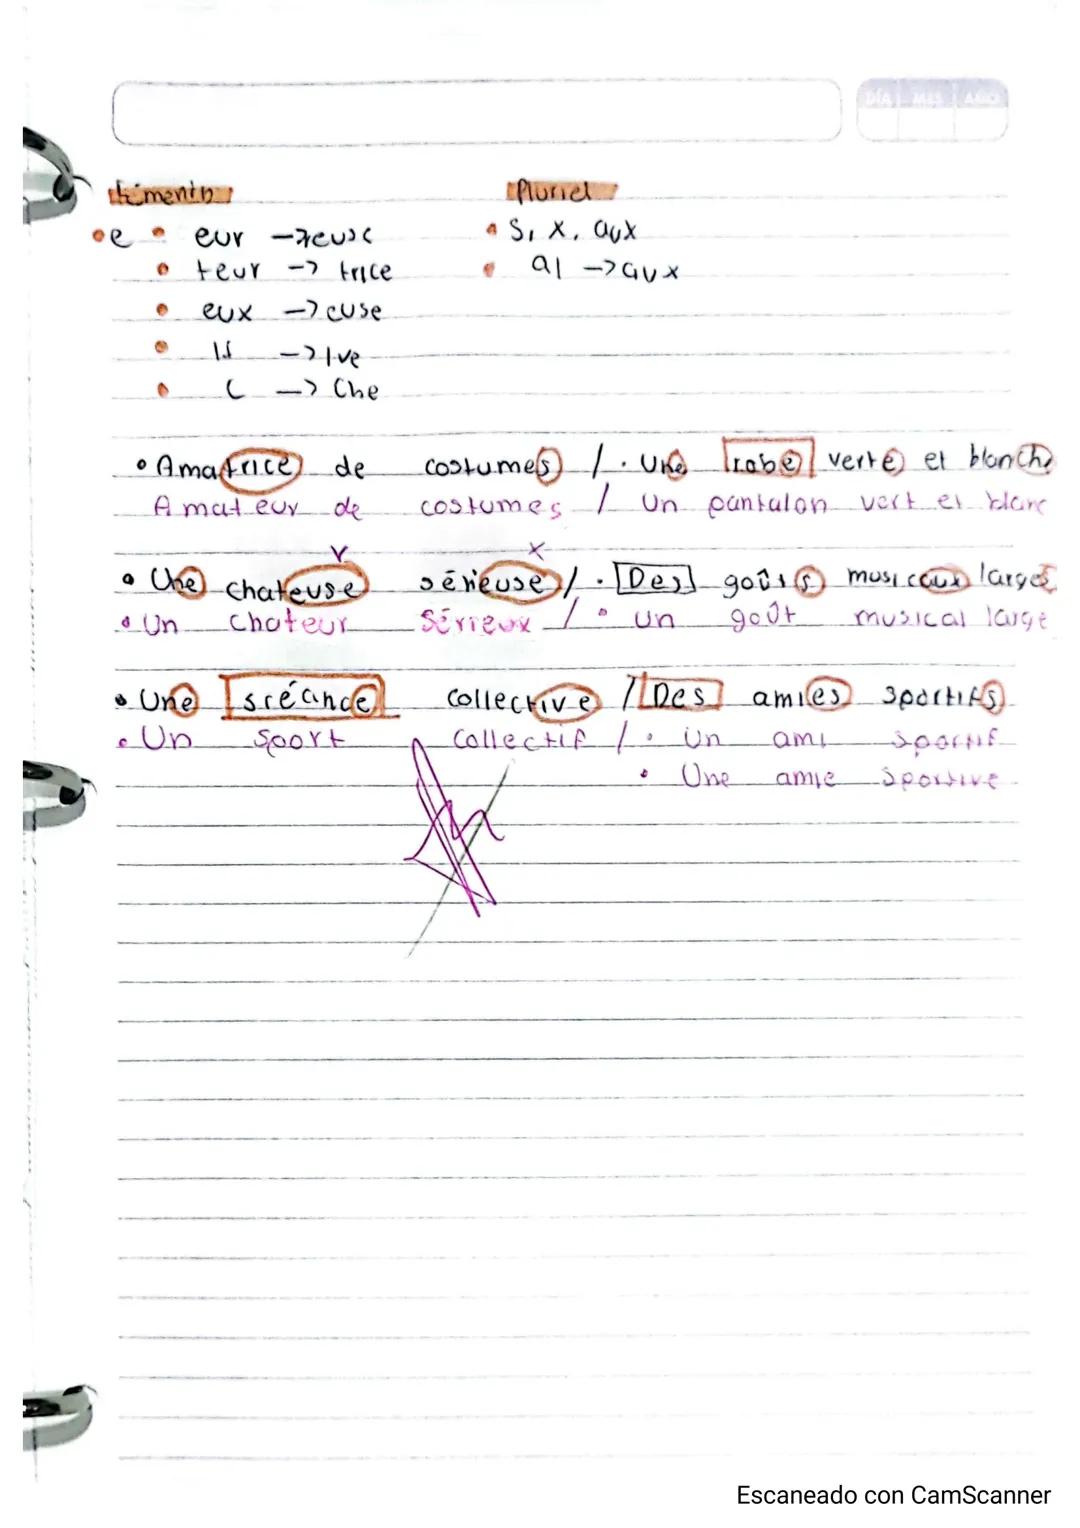 DÍA MES AÑO
Féminin Pluriel
e • eur -> euse • S, X, aux
• teur -> trice • al -> aux
• eux -> euse
• if -> ive
• C -> Che
• Amatrice de costumes / • Une robe verte et blanche
Amateur de costumes / Un pantalon vert et blanc
• Une chateuse sérieuse / • Des goûts musicaux larges
• Un Chateur Sérieux / • Un goût musical large
• Une sréance collective / Des amies sportifs
• Un Sport Collectif / • Un ami sportif
• Une amie sportive
Escaneado con CamScanner